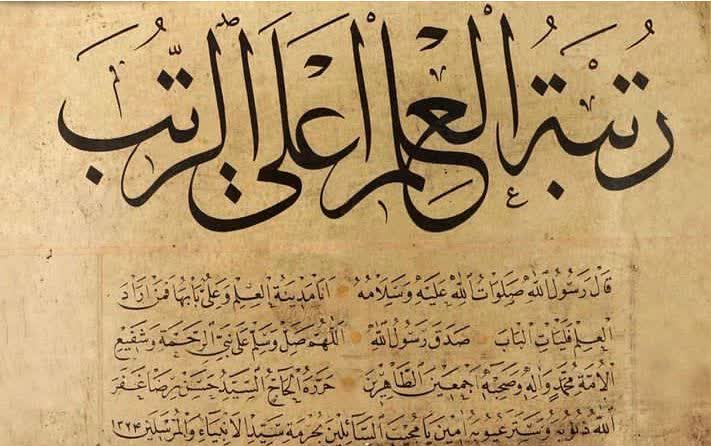 رُتْبَةُ الْعِلْمِ أَعْلَى الرُّتَبِ
قَالَ رَسُولُ اللهِ صَلَوَاتُ اللهِ عَلَيْهِ وَسَلَامُهُ اَنَا مَدِينَةُ الْعِلْمِ وَعَلِيٌّ بَابُهَا فَمَنْ اَرَادَ
الْعِلْمَ فَلْيَأْتِ الْبَابَ صَدَقَ رَسُولُ اللهِ اَللّٰهُمَّ صَلِّ وَسَلِّمْ عَلَى نَبِيِّ الرَّحْمَةِ وَشَفِيعِ
الْاُمَّةِ مُحَمَّدٍ وَاٰلِهِ وَصَحْبِهِ اَجْمَعِينَ الطَّاهِرِينَ حَرَّرَهُ الْحَاجُّ السَّيِّدُ حَسَنْ رِضَا غَفَرَ
اللهُ ذُنُوبَهُ وَسَتَرَ عُيُوبَهُ اٰمِينَ يَا مُجِيبَ السَّائِلِينَ بِحُرْمَةِ سَيِّدِ الْاَنْبِيَاءِ وَالْمُرْسَلِينَ ١٣٢٤